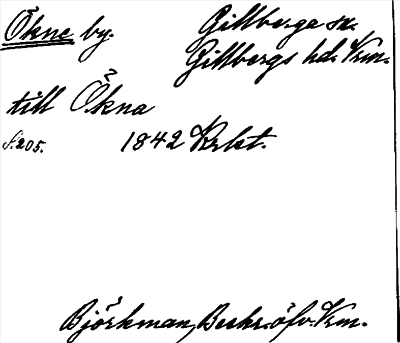 Ökne by. Gillberga sn.
Gillbergs hd. Vrm.
till Ökna
S. 205. 1842 Krlst.
Björkman, Beskr. öfv. Vrm.